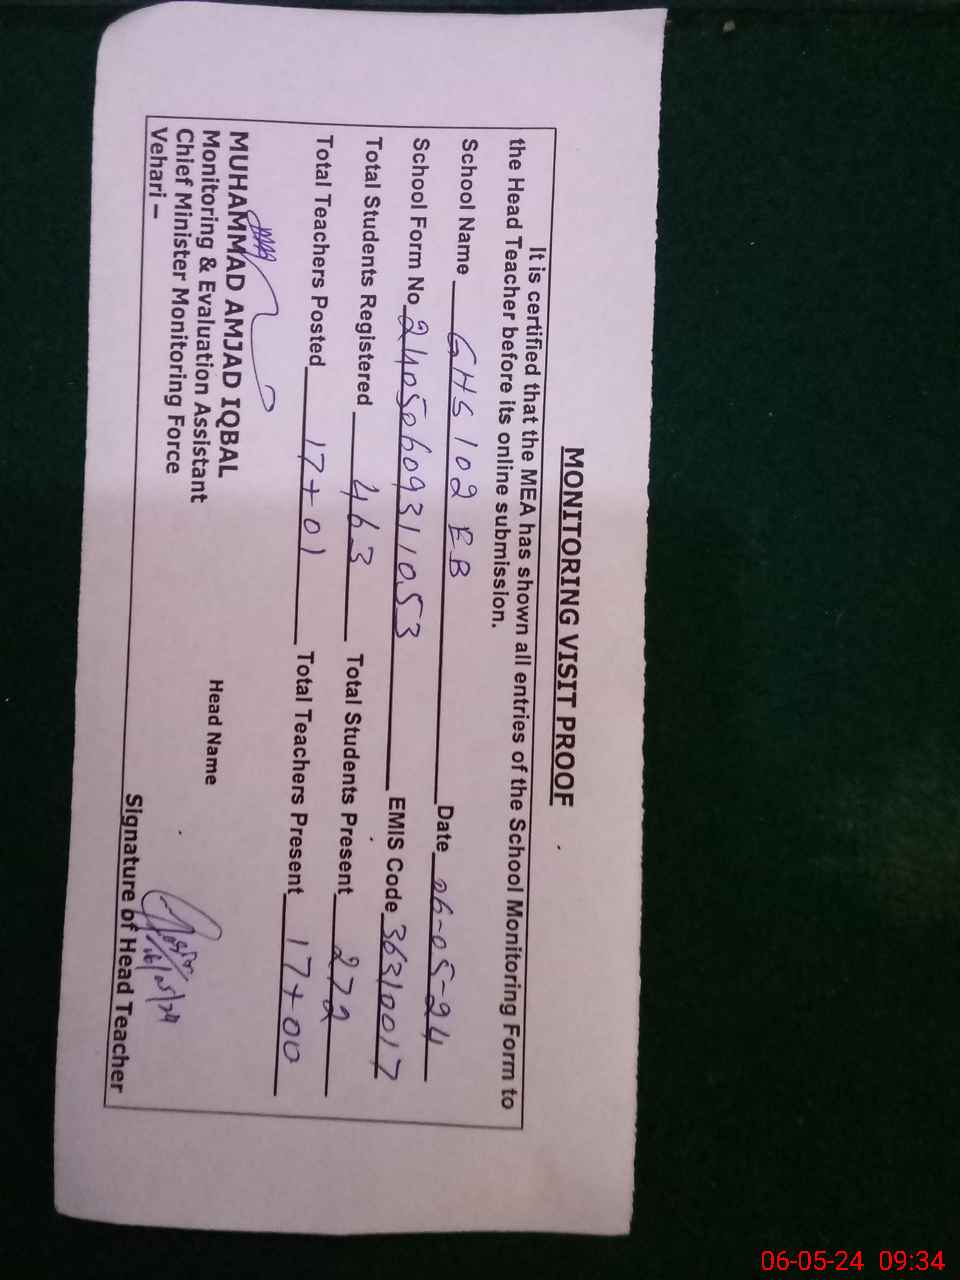 MONITORING VISIT PROOF
It is certified that the MEA has shown all entries of the School Monitoring Form to
the Head Teacher before its online submission.
School Name GHS 102 EB Date 06-05-24
School Form No 24050609311053 EMIS Code 36310017
Total Students Registered 463 Total Students Present 272
Total Teachers Posted 17+01 Total Teachers Present 17+00
MUHAMMAD AMJAD IQBAL
Monitoring & Evaluation Assistant
Chief Minister Monitoring Force
Vehari –
Head Name
06/05/24
Signature of Head Teacher
06-05-24 09:34